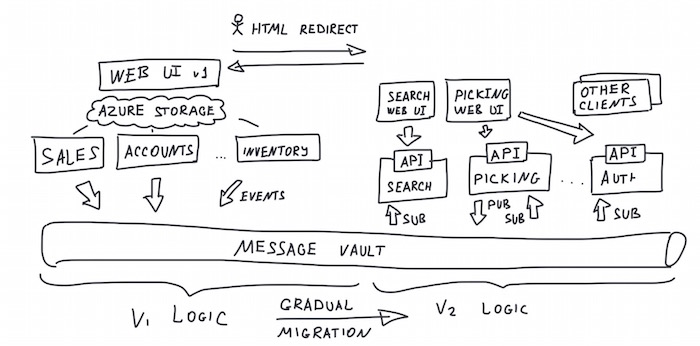 HTML REDIRECT
WEB UI v1
AZURE STORAGE
SALES
ACCOUNTS
...
INVENTORY
EVENTS
SEARCH
WEB UI
PICKING
WEB UI
OTHER
CLIENTS
API
SEARCH
API
PICKING
...
API
AUTH
SUB
PUB
SUB
SUB
MESSAGE VAULT
V1 LOGIC
GRADUAL
MIGRATION
V2 LOGIC